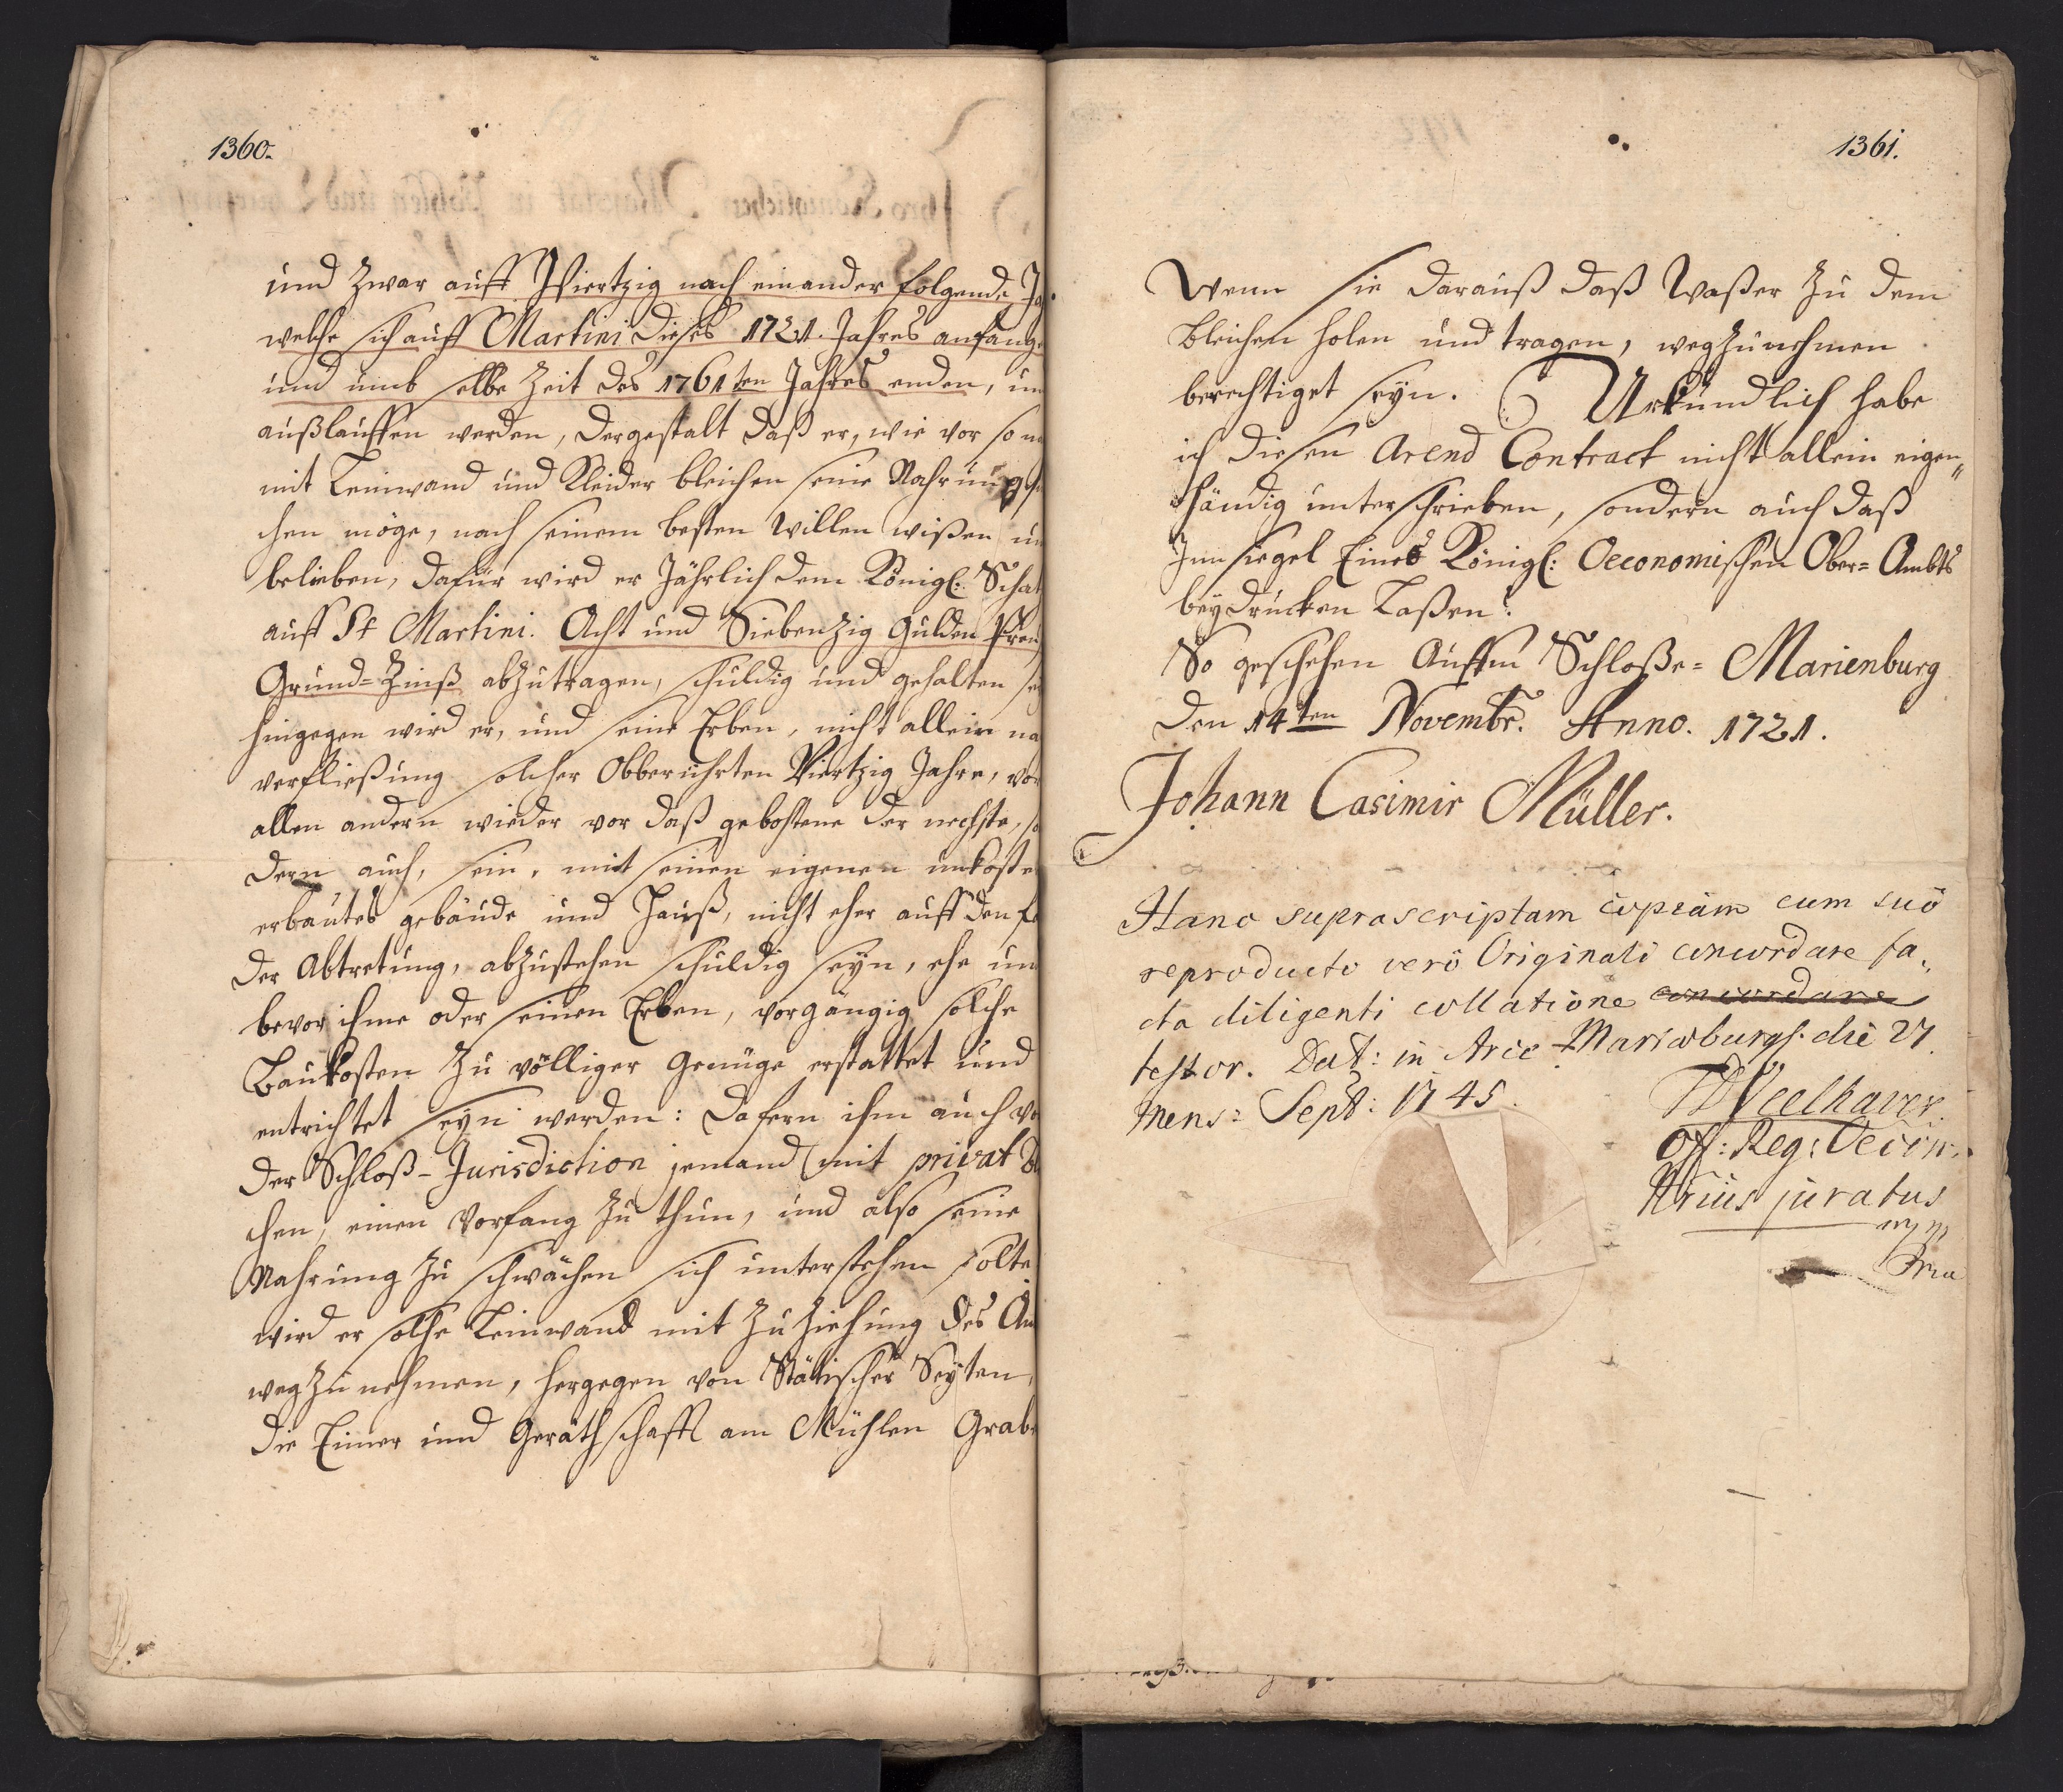 1360.
und zwar auff Viertzig nach einander folgende Ja
welche sich auff Martini dieses 1721. Jahres anfange
und umb selbe Zeit des 1761ten Jahres enden, un
außlauffen werden, dergestalt daß er, wie vor so
mit Leinwand und Kleider bleichen seine Nahrung
chen möge, nach seinem besten Willen wißen un
belieben, dafür wird er Jährlich dem Königl: Schat
auff St Martini. Acht und Siebenzig Gulden Preu
Grund=Zinß abzutragen, schuldig und gehalten sey
hingegen wird er, und seine Erben, nicht allein na
verfließung solcher Obberührten Viertzig Jahre, vor
allen andern wieder vor daß gebothene der nechste, so
dern auch, sein, mit seinen eigenen unkoste
erbautes gebäude und Hauß, nicht eher auff den fa
der Abtretung, abzustehen schuldig seyn, ehe un
bevor ihme oder seinen Erben, vorgängig solche
Baukosten zu völliger Genüge erstattet und
entrichtet seyn werden: Dafern ihm auch vo
der Schloß-Jurisdiction jemand mit privat Bl
chen, einen Vorfang zu thun, und also seine
Nahrung zu schwächen sich unterstehen solte
wird er solche Leinwand mit Zuziehung des Am
weg zu nehmen, hergegen von Stätischer Seyten,
die Eimer und Geräthschafft am Mühlen Grabe
1361.
Wenn sie darauß daß Waßer zu dem
bleichen holen und tragen, wegzunehmen
berechtiget seyn. Urkundlich habe
ich diesen Arend Contract nicht allein eigen„
händig unterschrieben, sondern auch daß
Innsiegel Eines Königl: Oeconomischen Ober=Ambts
beydrucken Laßen.
So geschehen Auffm Schloße= Marienburg
den 14ten Novembr. Anno. 1721.
Johann Casimir Müller.
Hanc suprascriptam copiam cum suo
reproducto vero Originali concordare fa„
cta diligenti collatione concordare
testor. Dat: in Arce Mariæburgs. die 27.
mens: Sept: 1745.
Off: Reg: Oecon:
Nrius juratus
mp